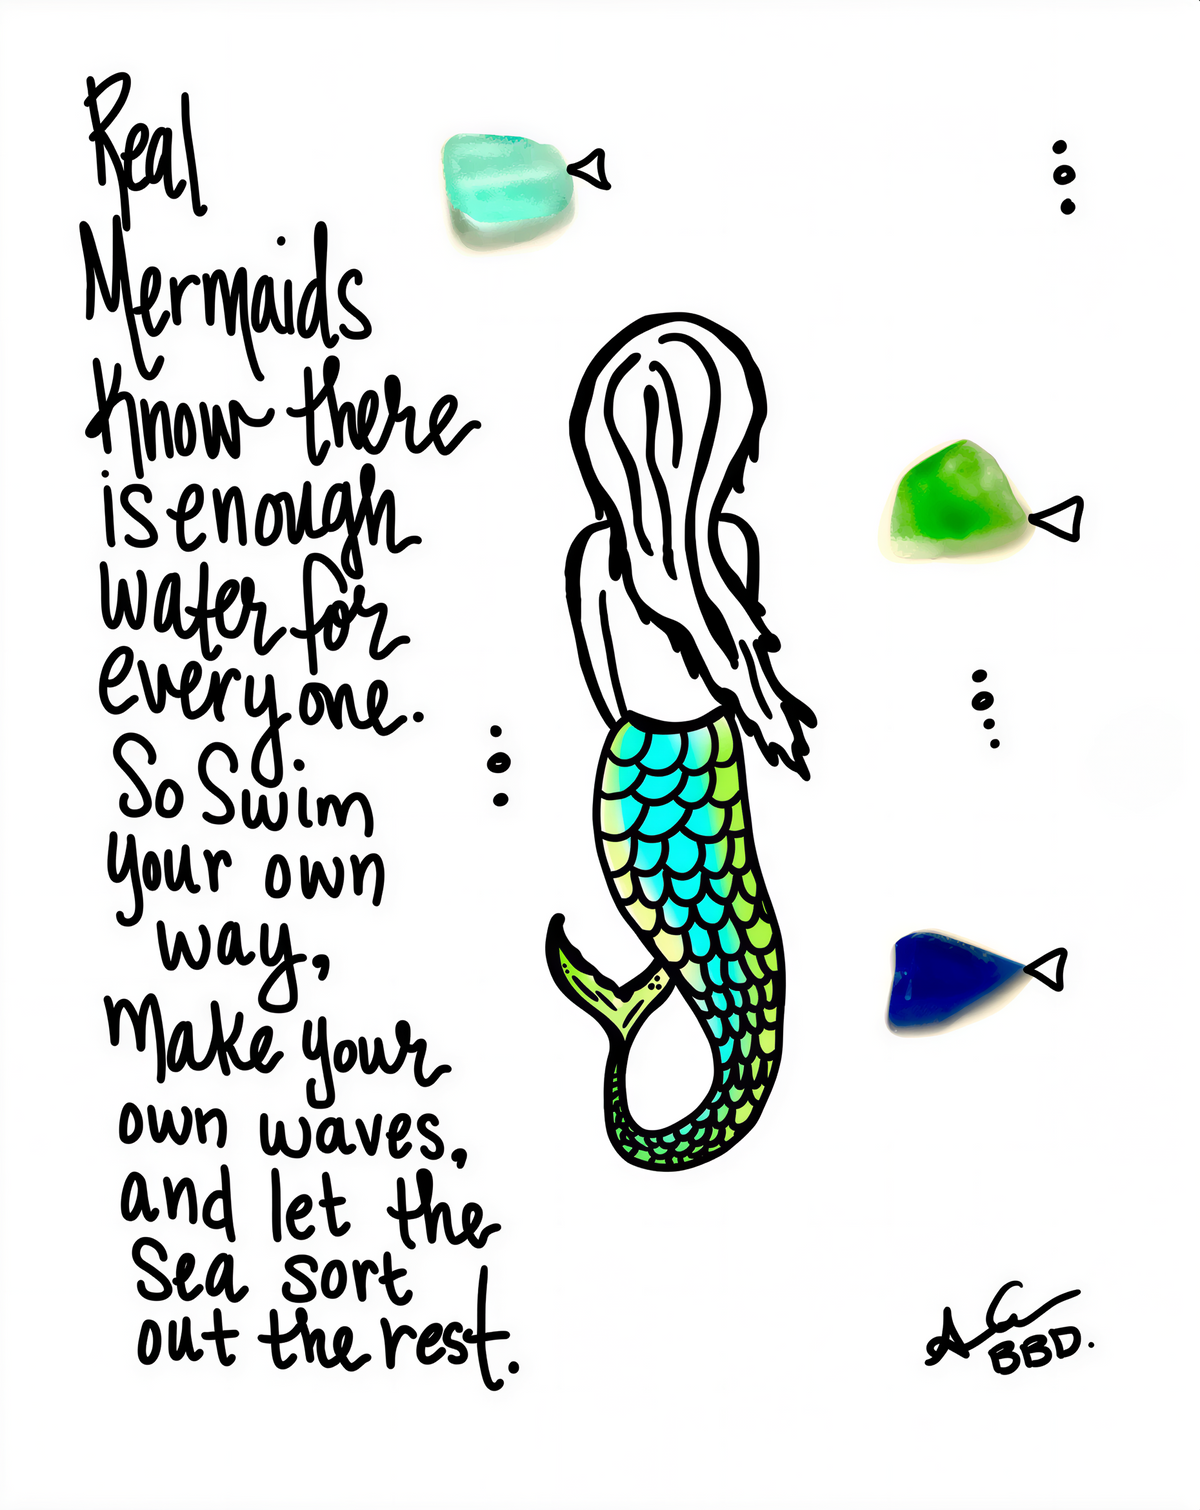 Real
Mermaids
Know there
is enough
water for
everyone.
So Swim
your own
way,
Make your
own waves,
and let the
Sea sort
out the rest.
BBD.